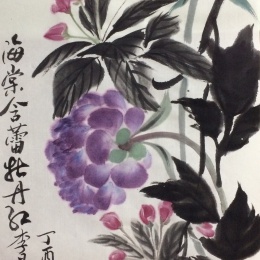 海棠含蕾牡丹红
丁酉